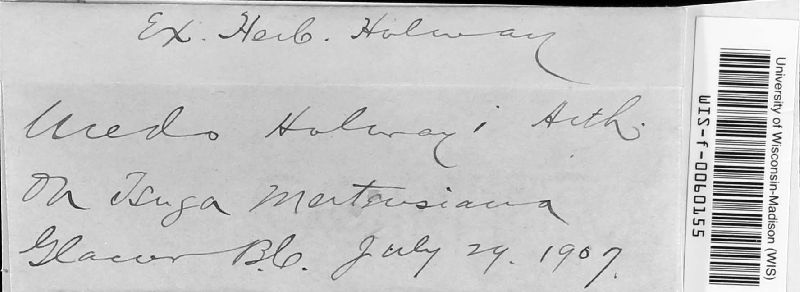 Ex. Herb. Holway
Uredo Holwayi Arth.
On Tsuga Mertensiana
Glacier B.C. July 29. 1907.
University of Wisconsin-Madison (WIS)
WIS-f-0060155